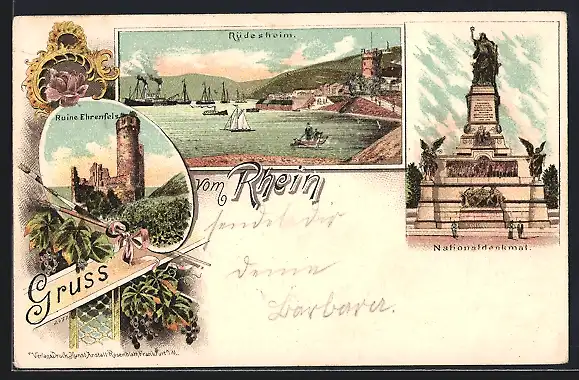 Rüdesheim.
Ruine Ehrenfels
Gruss
vom Rhein
sendet dir
deine
Barbara.
Nationaldenkmal.
Verlag u. Druck, Kunst-Anstalt Rosenblatt, Frankfurt a/M.